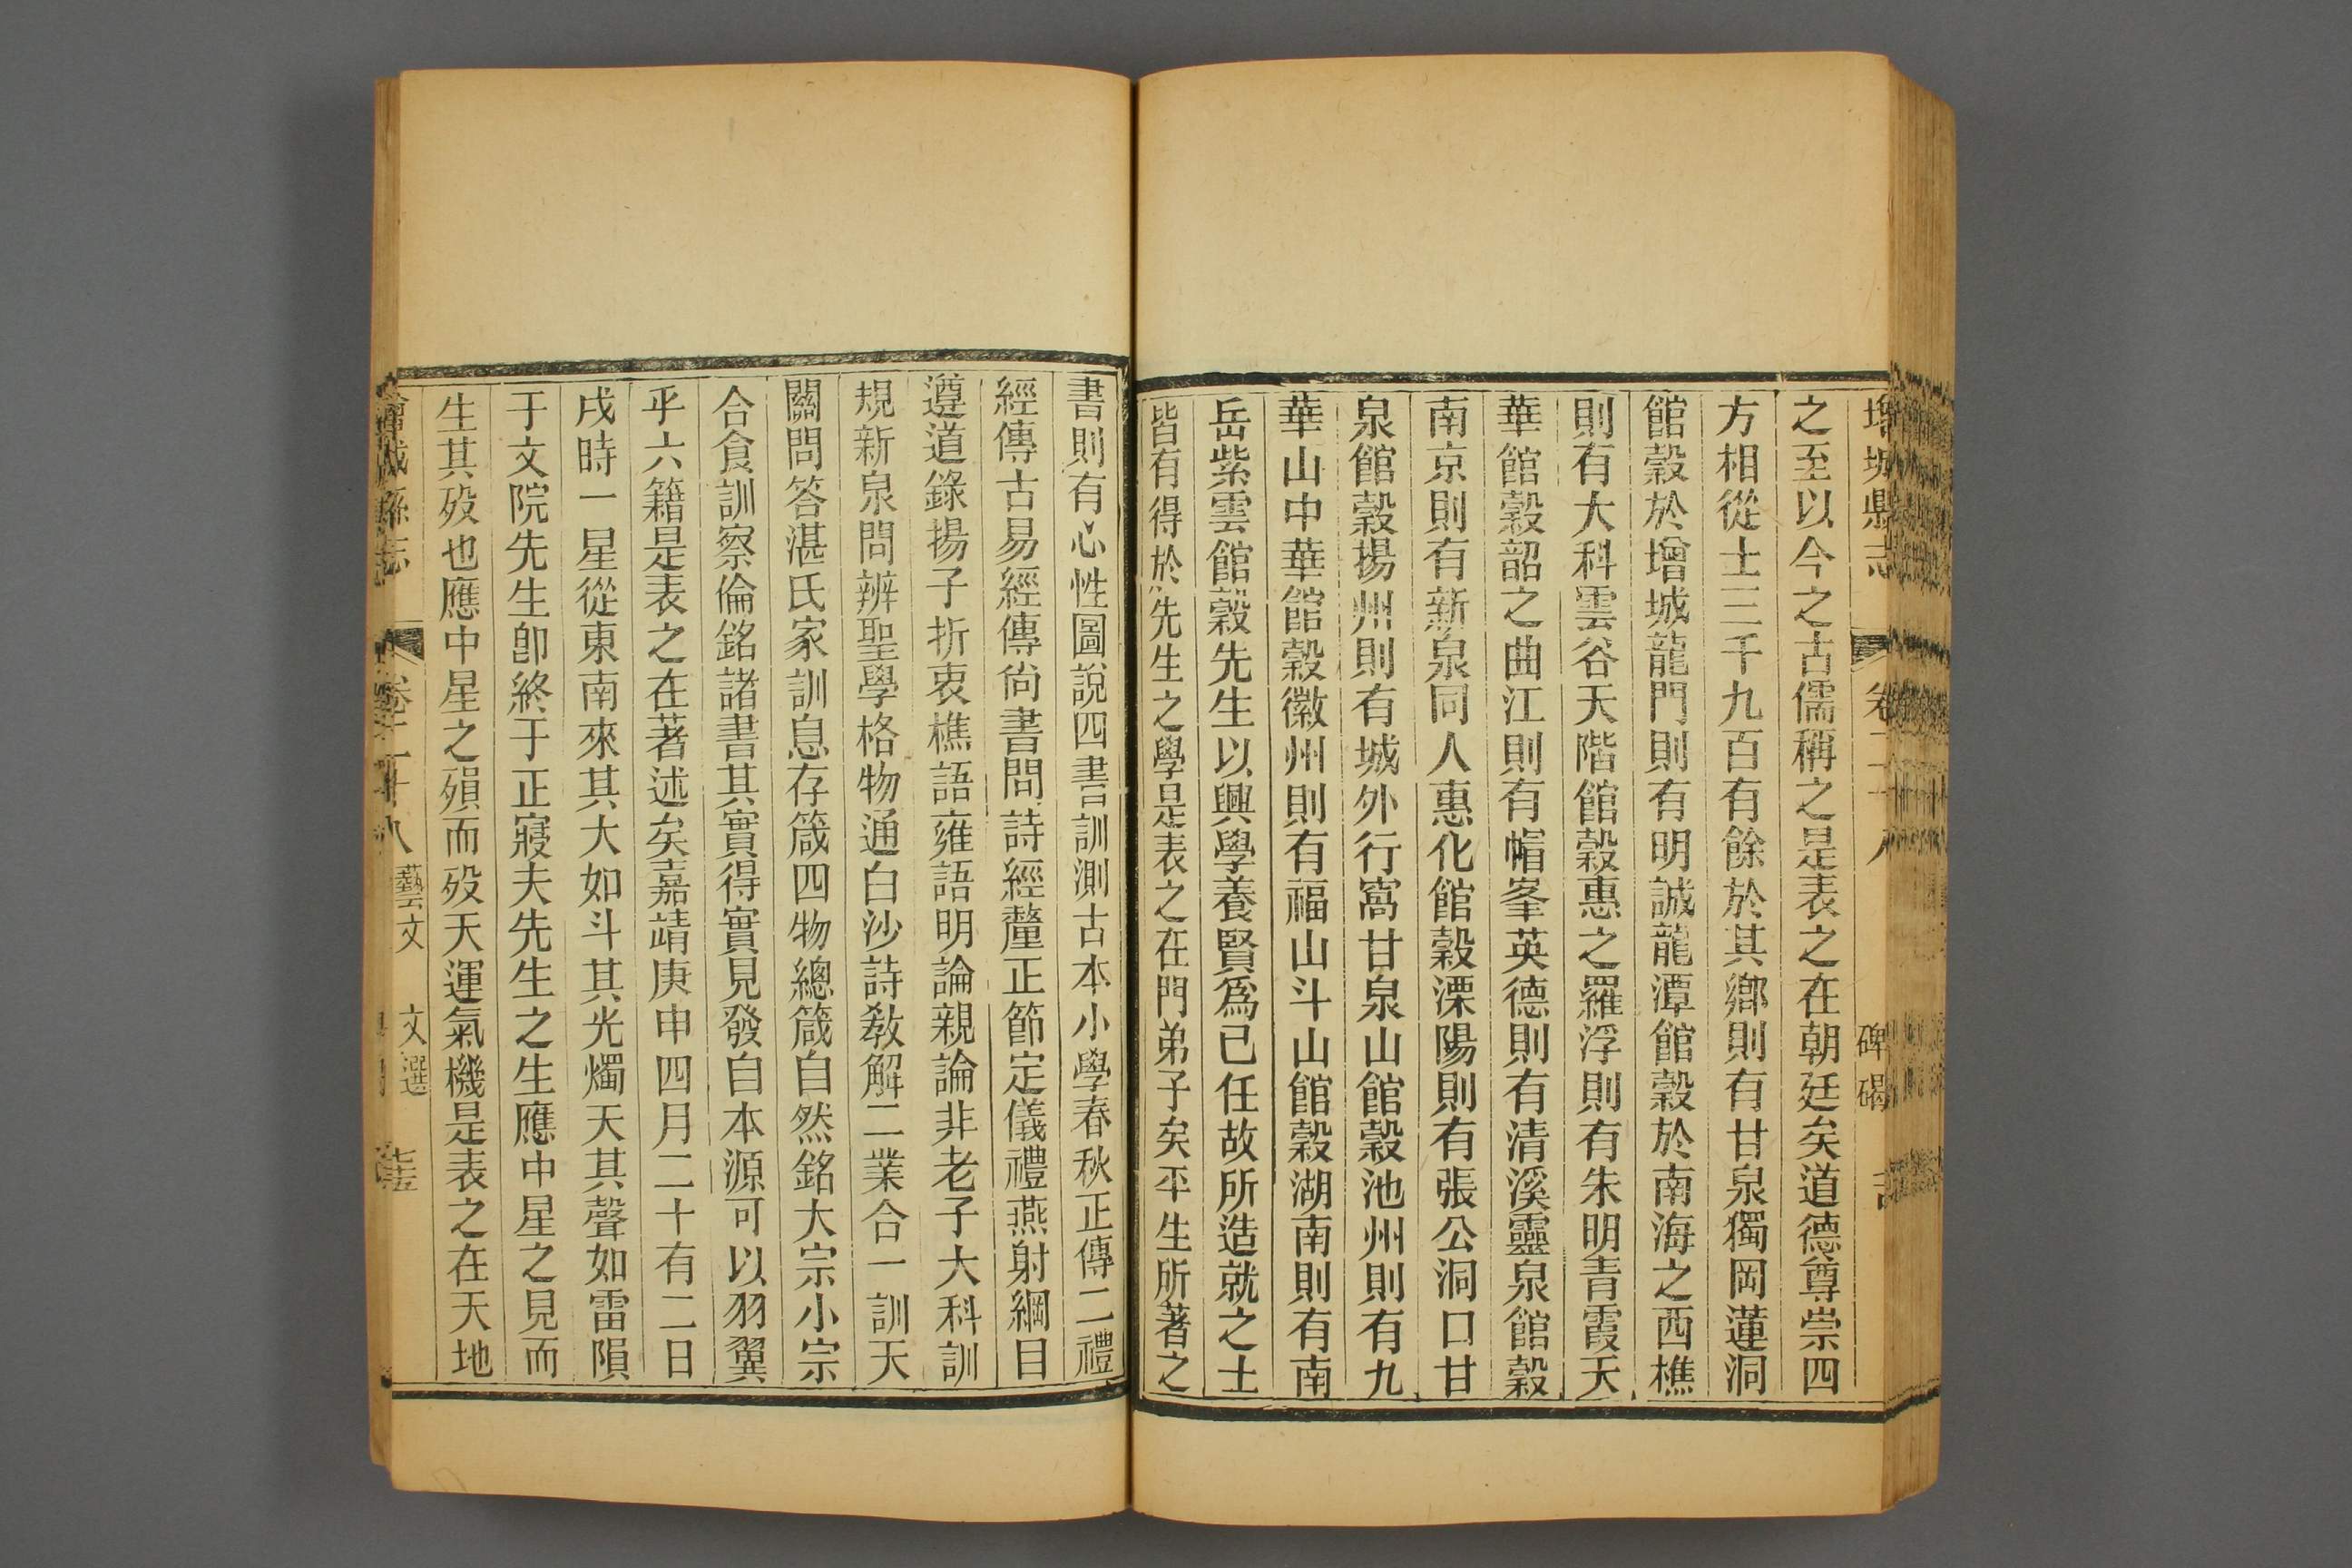 增城縣志 卷二十八 碑碣
之至以今之古儒稱之是表之在朝廷矣道德尊崇四
方相從士三千九百有餘於其鄉則有甘泉獨岡蓮洞
館穀於增城龍門則有明誠龍潭館穀於南海之西樵
則有大科雲谷天階館穀惠之羅浮則有朱明青霞天
華館穀韶之曲江則有帽峯英德則有清溪靈泉館穀
南京則有新泉同人惠化館穀溧陽則有張公洞口甘
泉館穀揚州則有城外行窩甘泉山館穀池州則有九
華山中華館穀徽州則有福山斗山館穀湖南則有南
岳紫雲館穀先生以興學養賢爲已任故所造就之士
皆有得於先生之學是表之在門弟子矣平生所著之
書則有心性圖說四書訓測古本小學春秋正傳二禮
經傳古易經傳尙書問詩經釐正節定儀禮燕射綱目
遵道錄揚子折衷樵語雍語明論親論非老子大科訓
規新泉問辨聖學格物通白沙詩敎解二業合一訓天
關問答湛氏家訓息存箴四物總箴自然銘大宗小宗
合食訓察倫銘諸書其實得實見發自本源可以羽翼
乎六籍是表之在著述矣嘉靖庚申四月二十有二日
戌時一星從東南來其大如斗其光燭天其聲如雷隕
于文院先生卽終于正寢夫先生之生應中星之見而
生其歿也應中星之殞而歿天運氣機是表之在天地
增城縣志 卷二十八 藝文 文選